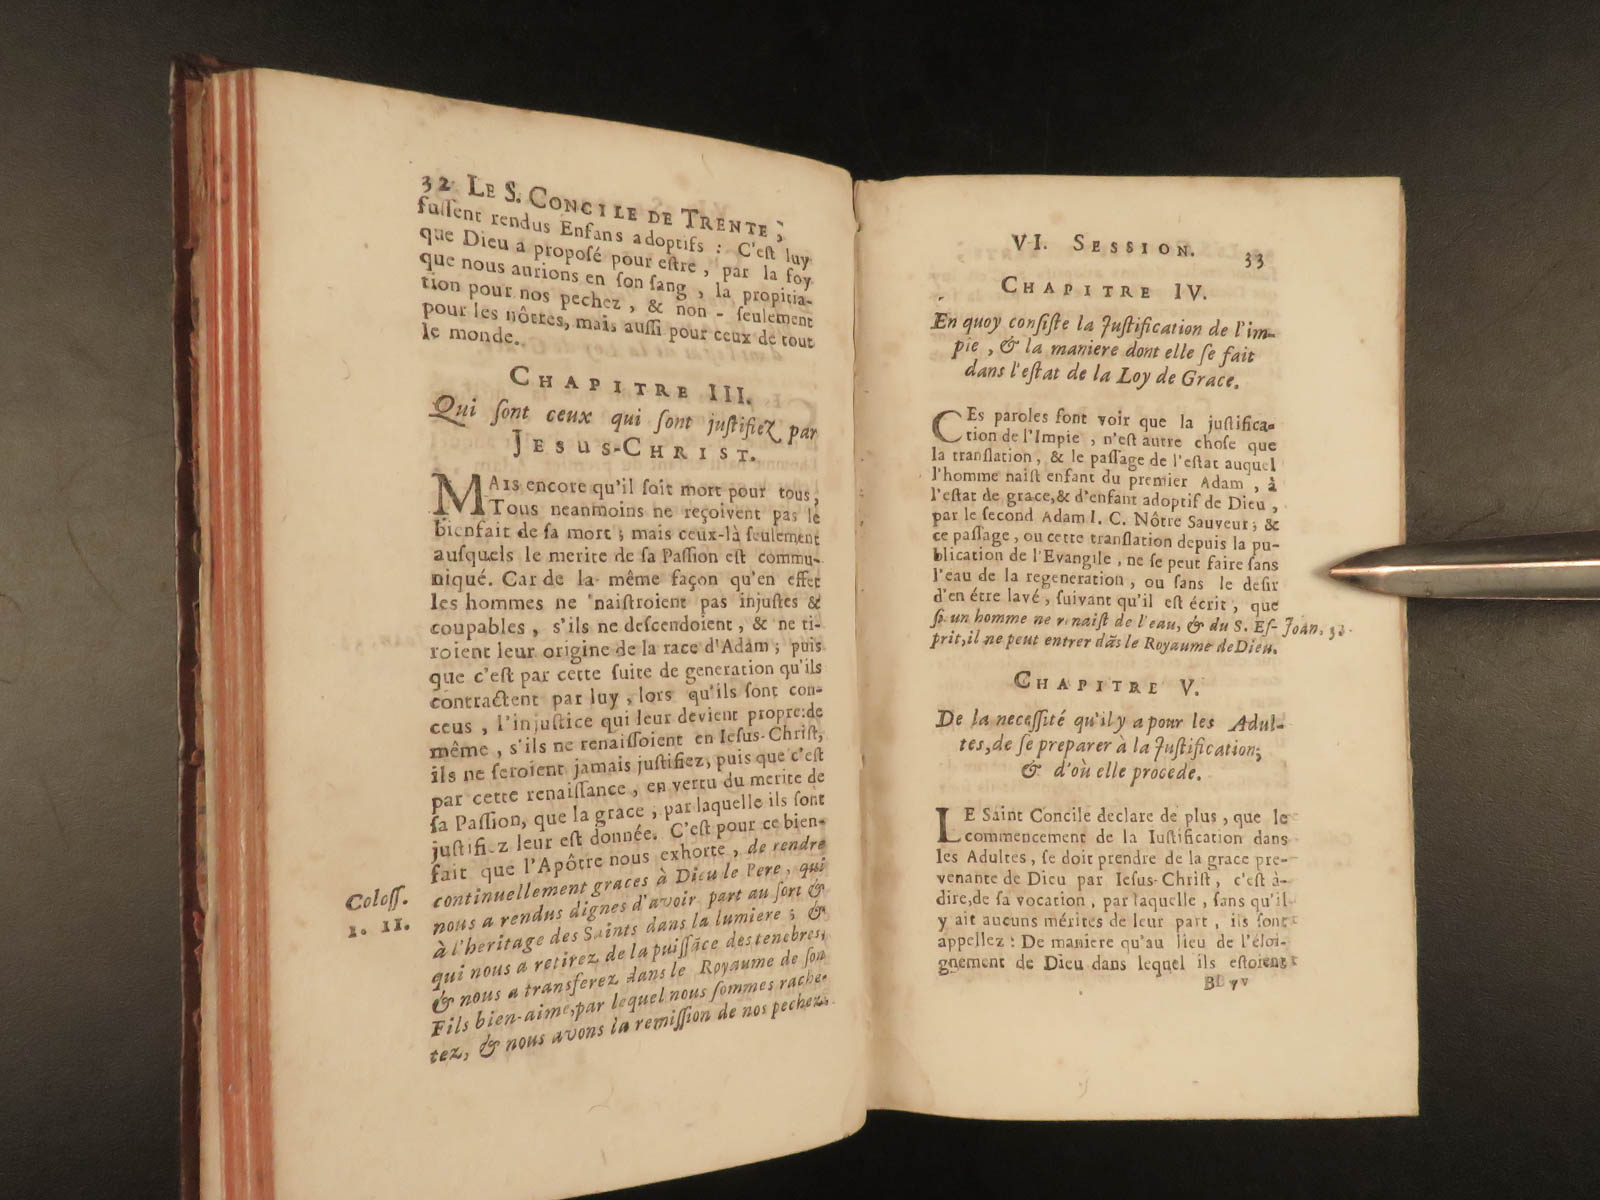 32 LE S. CONCILE DE TRENTE;
fussent rendus Enfans adoptifs : C'est luy
que Dieu a proposé pour estre, par la foy
que nous aurions en son sang, la propitia-
tion pour nos pechez, & non-seulement
pour les nôtres, mais aussi pour ceux de tout
le monde.
CHAPITRE III.
Qui sont ceux qui sont justifiez par
JESUS-CHRIST.
MAIS encore qu'il soit mort pour tous,
Tous neanmoins ne reçoivent pas le
bienfait de sa mort; mais ceux-là seulement
ausquels le merite de sa Passion est commu-
niqué. Car de la même façon qu'en effet
les hommes ne naistroient pas injustes &
coupables, s'ils ne descendoient, & ne ti-
roient leur origine de la race d'Adam; puis
que c'est par cette suite de generation qu'ils
contractent par luy, lors qu'ils sont con-
ceus, l'injustice qui leur devient propre: de
même, s'ils ne renaissoient en Iesus-Christ,
ils ne seroient jamais justifiez, puis que c'est
par cette renaissance, en vertu du merite de
sa Passion, que la grace, par laquelle ils sont
justifiez leur est donnée. C'est pour ce bien-
fait que l'Apôtre nous exhorte, de rendre
Coloss. 1. 11.
continuellement graces à Dieu le Pere, qui
nous a rendus dignes d'avoir part au sort &
à l'heritage des Saints dans la lumiere; &
qui nous a retirez de la puissāce des tenebres,
& nous a transferez dans le Royaume de son
Fils bien-aimé, par lequel nous sommes rache-
tez, & nous avons la remission de nos pechez.
VI. SESSION. 33
CHAPITRE IV.
En quoy consiste la Justification de l'im-
pie, & la maniere dont elle se fait
dans l'estat de la Loy de Grace.
CEs paroles font voir que la justifica-
tion de l'Impie, n'est autre chose que
la translation, & le passage de l'estat auquel
l'homme naist enfant du premier Adam, à
l'estat de grace, & d'enfant adoptif de Dieu,
par le second Adam I. C. Nôtre Sauveur; &
ce passage, ou cette translation depuis la pu-
blication de l'Evangile, ne se peut faire sans
l'eau de la regeneration, ou sans le desir
d'en étre lavé, suivant qu'il est écrit, que
si un homme ne renaist de l'eau, & du S. Es- Joan. 3.
prit, il ne peut entrer dās le Royaume de Dieu.
CHAPITRE V.
De la necessité qu'il y a pour les Adul-
tes, de se preparer à la Justification;
& d'où elle procede.
LE Saint Concile declare de plus, que le
commencement de la Iustification dans
les Adultes, se doit prendre de la grace pre-
venante de Dieu par Iesus-Christ, c'est à-
dire, de sa vocation, par laquelle, sans qu'il
y ait aucuns mérites de leur part, ils sont
appellez: De maniere qu'au lieu de l'éloi-
gnement de Dieu dans lequel ils estoient
BB yv